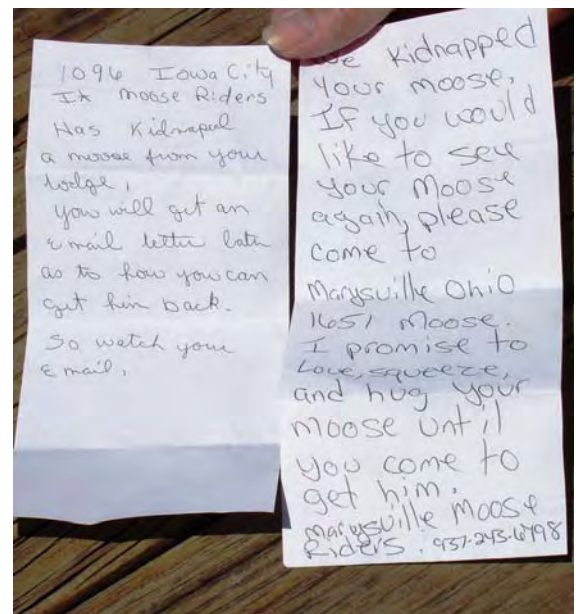 1096 Iowa City
IA Moose Riders
Has Kidnaped
a moose from your
lodge,
you will get an
Email letter later
as to how you can
get him back.
So watch your
Email,
We Kidnapped
Your moose,
If you would
like to see
your Moose
again, please
come to
Marysville Ohio
1651 Moose.
I promise to
Love, squeeze,
and hug your
moose until
you come to
get him.
Marysville Moose
Riders. 937-243-6798